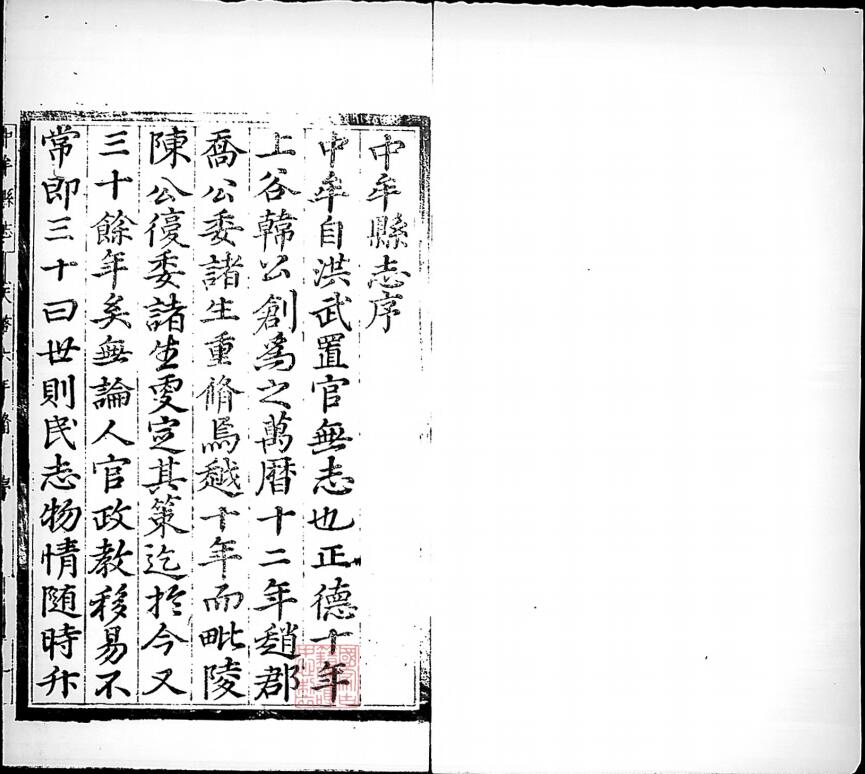 中牟縣志序
中牟自洪武置官無志也正德十年
上谷韓公創為之萬曆十二年趙郡
喬公委諸生重脩焉越十年而毗陵
陳公復委諸生更定其策迄於今又
三十餘年矣無論人官政教移易不
常即三十曰世則民志物情隨時升
中牟縣志